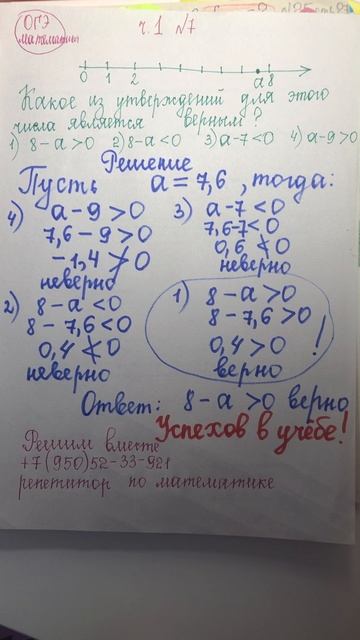 ОГЭ
математика
ч.1 №7
0 1 2 а 8
Какое из утверждений для этого
числа является верным?
1) 8-а>0 2) 8-а<0 3) а-7<0 4) а-9>0
Решение
Пусть а=7,6, тогда:
4) а-9>0
7,6-9>0
-1,4≯0
неверно
3) а-7<0
7,6-7<0
0,6≮0
неверно
2) 8-а<0
8-7,6<0
0,4≮0
неверно
1) 8-а>0
8-7,6>0
0,4>0
верно!
Ответ: 8-а>0 верно
Успехов в учёбе!
Решим вместе
+7(950)52-33-921
репетитор по математике